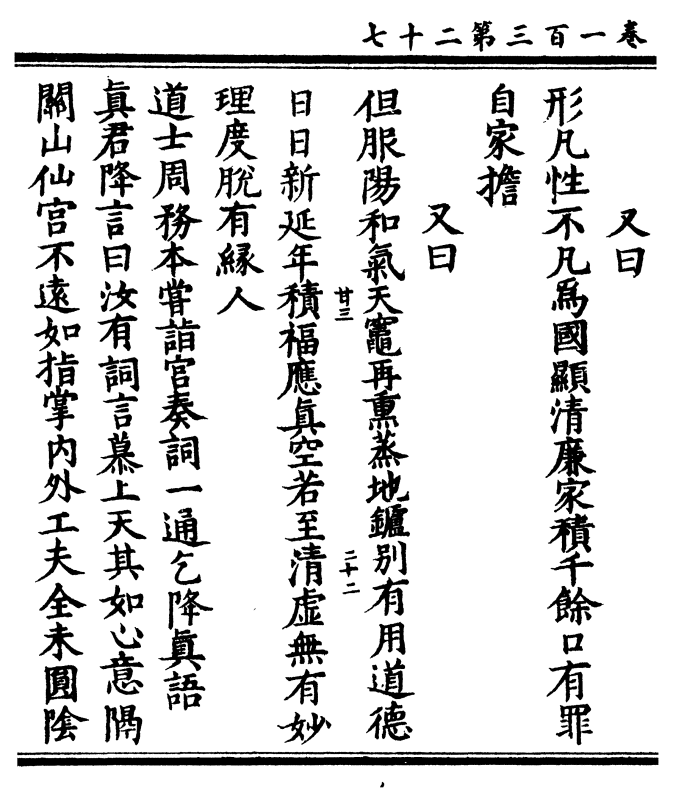 卷一百三第二十七
又曰
形凡性不凡爲國顯清廉家積千餘口有罪
自家擔
又曰
但服陽和氣天竈再熏蒸地鑪别有用道德
廿三
二十二
日日新延年積福應眞空若至清虛無有妙
理度脫有緣人
道士周務本甞詣宫奏詞一通乞降眞語
眞君降言曰汝有詞言慕上天其如心意隔
關山仙宫不遠如指掌内外工夫全未圓陰